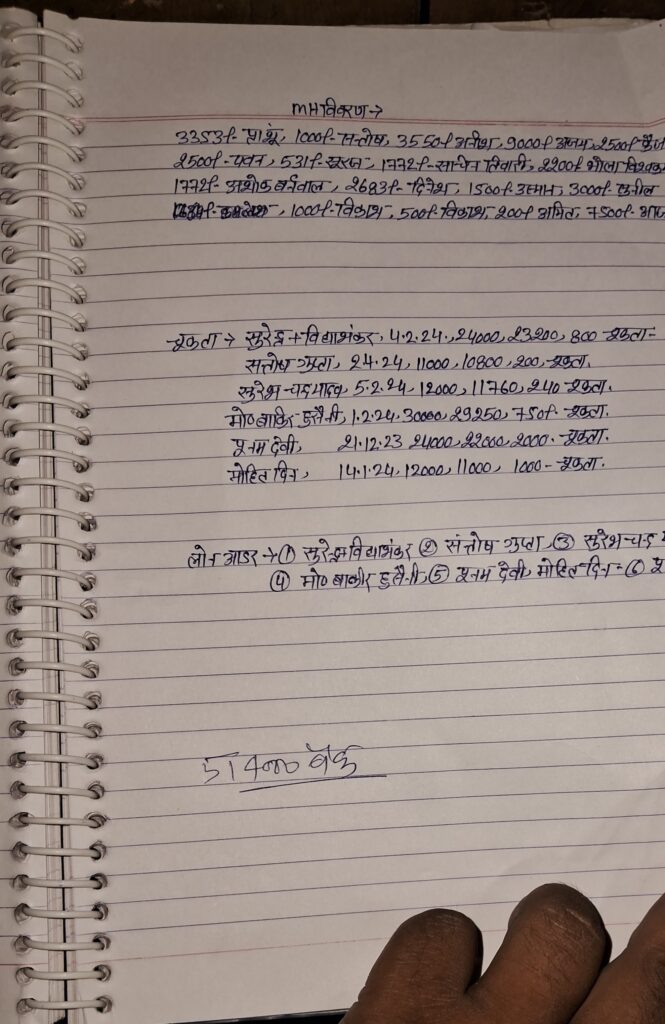 MH विवरण →
3353/- प्राशूं, 1000/- सन्तोष, 3550/- अनीश, 9000/- अजय, 2500/-
2500/- पवन, 531/- सूरज, 1772/- तिवारी, 2200/- भोला
1772/- अशोक बर्नवाल, 2683/- दिनेश, 1500/- उस्मान, 3000/- सुनील
1000/- विकाश, 500/- विकाश, 200/- अमित, 7500/-
चुकता → सुरेन्द्र + विद्याशंकर, 4.2.24, 24000, 23200, 800 - चुकता-
सन्तोष गुप्ता, 24.24, 11000, 10800, 200, चुकता.
सुरेश चन्द्र यादव, 5.2.24, 12000, 11760, 240 - चुकता.
मो० बाकिर हुसैनी, 1.2.24, 30000, 29250, 750/- चुकता.
पूनम देवी, 21.12.23 24000, 22000, 2000 - चुकता.
मोहित दिन, 14.1.24, 12000, 11000, 1000 - चुकता.
लोन आडर → ① सुरेन्द्र विद्याशंकर ② संतोष गुप्ता, ③ सुरेश चन्द्र
④ मो० बाकीर हुसैनी, ⑤ पूनम देवी, मोहित दिन - ⑥
51400 बैंक